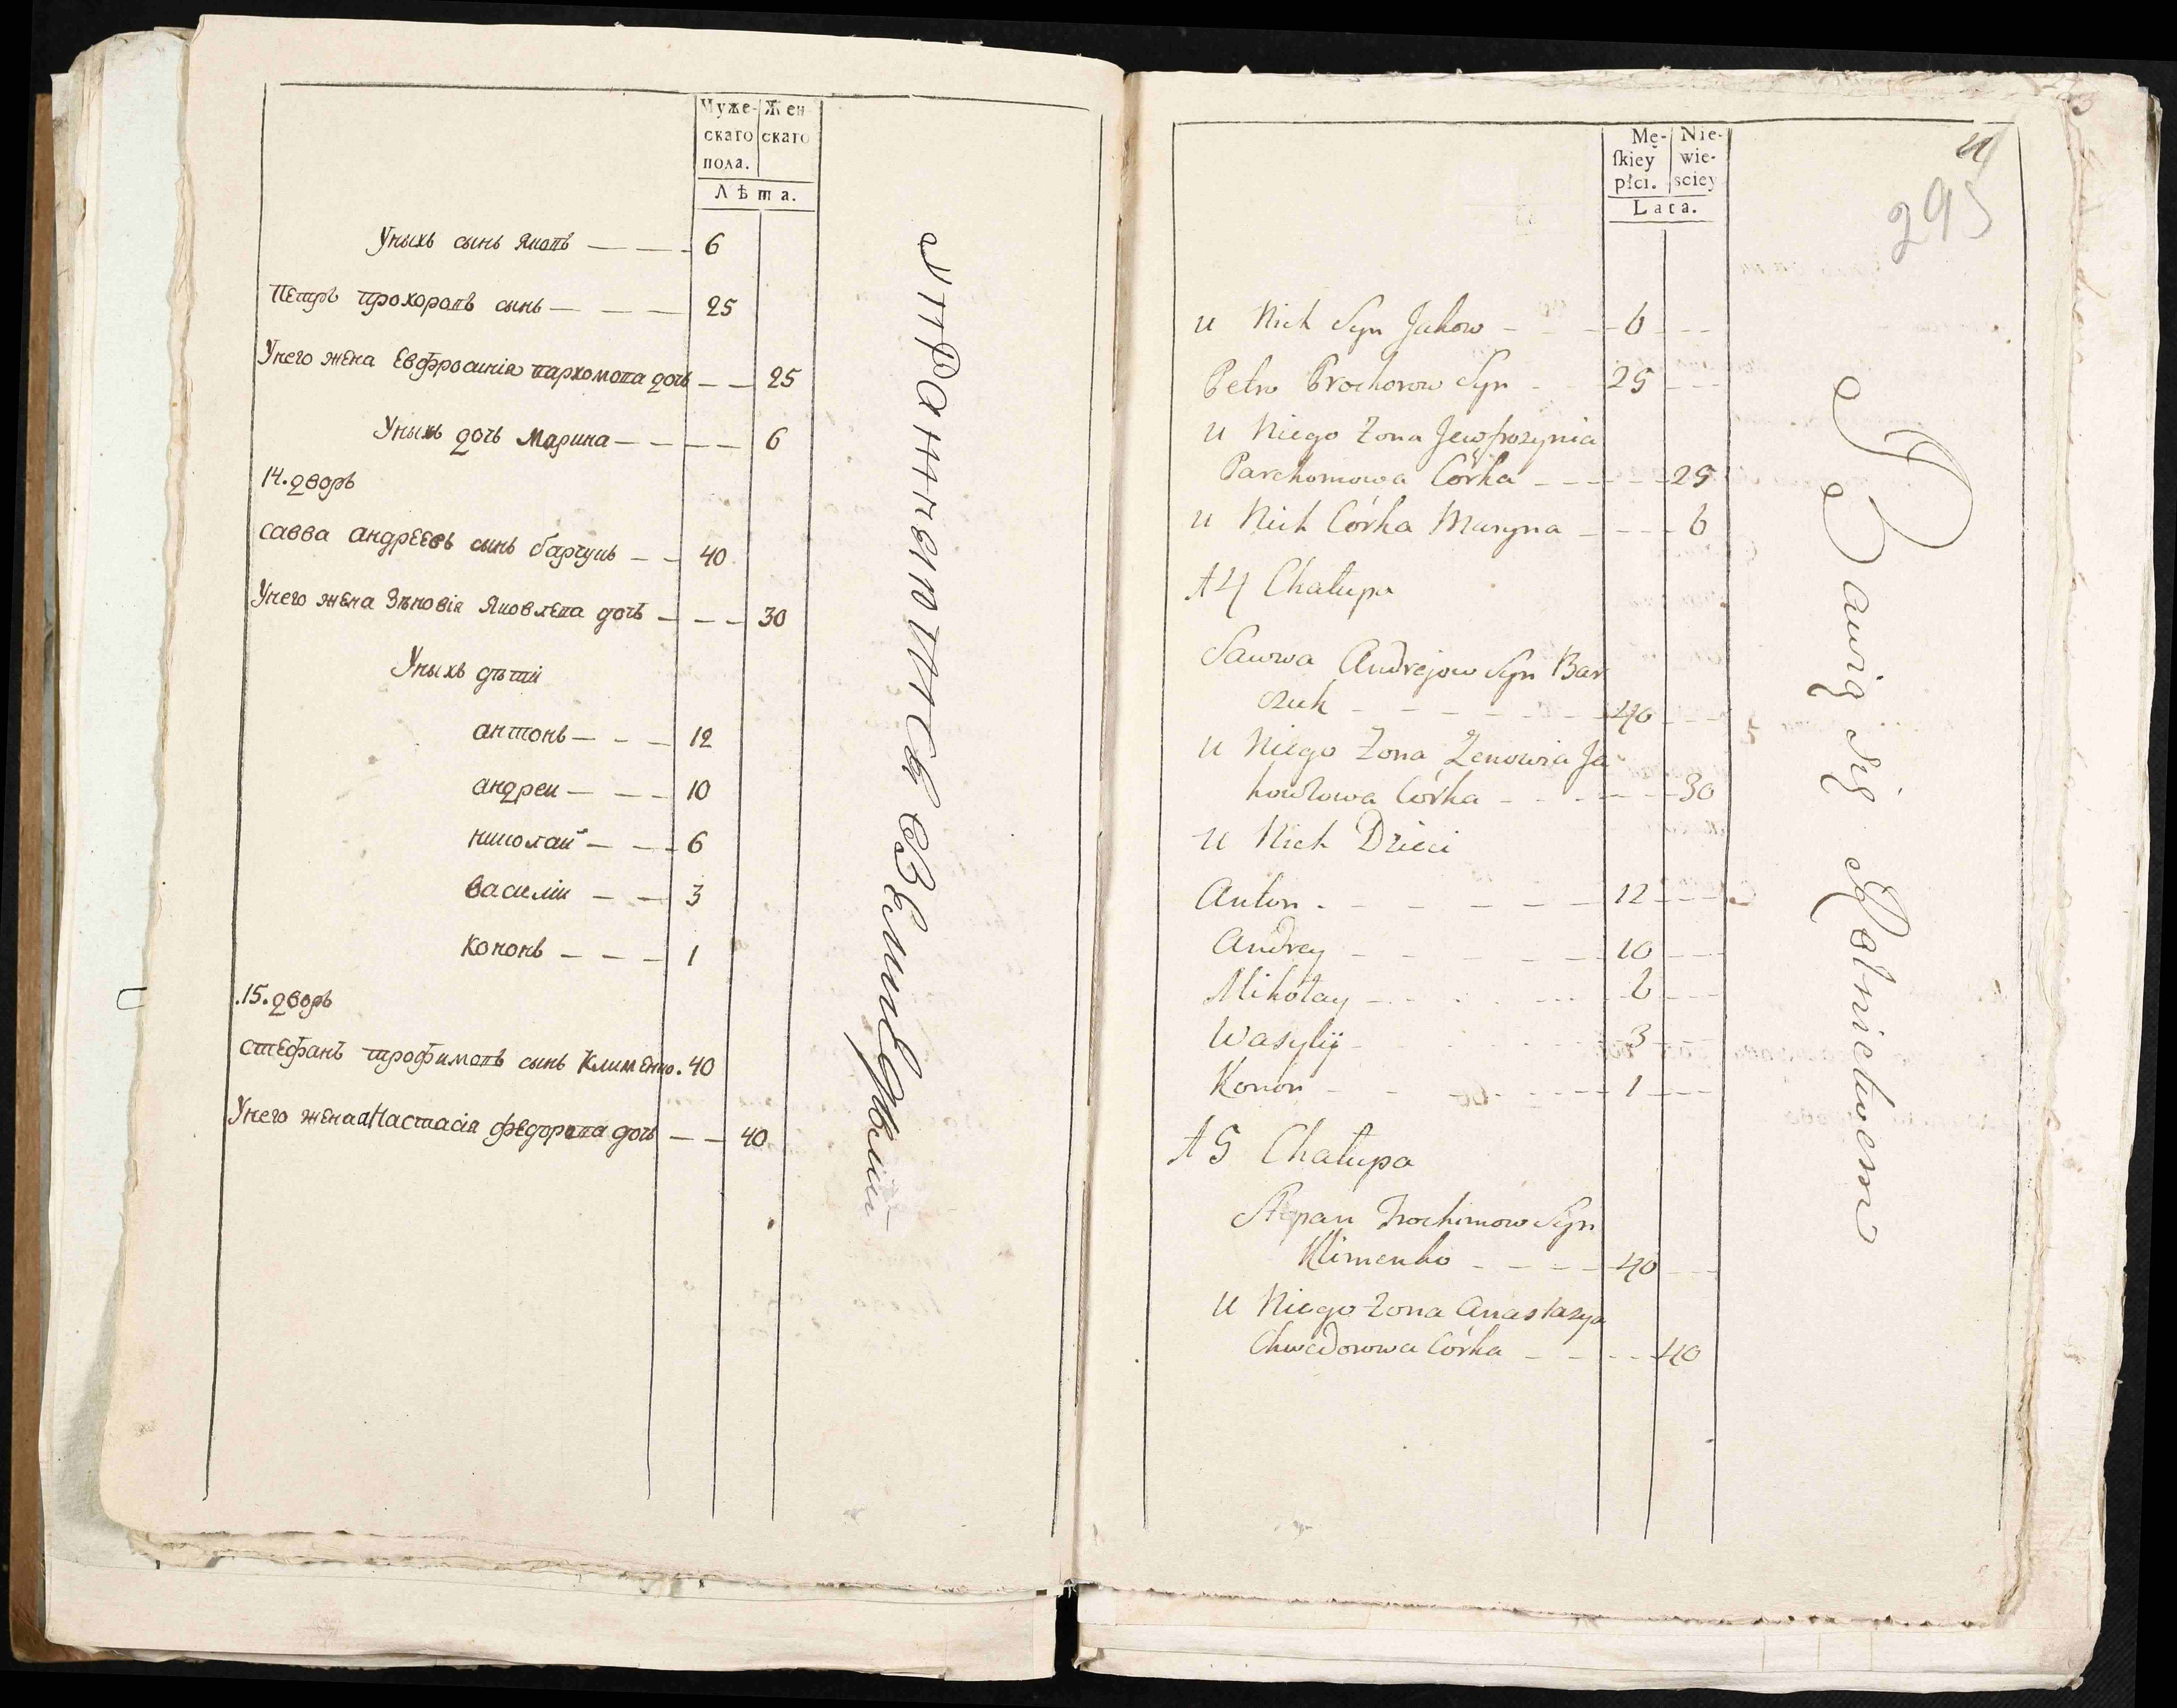 Муже-
скаго
пола.
Жен
скаго
Лѣта.
Уныхъ сынъ Яковъ — — — 6
Петръ прохоровъ сынъ — — — 25
Унего жена Евфросинія пархомова дочь — — 25
Уныхъ дочь Марина — — — — 6
14. дворъ
Савва андреевъ сынъ барчукъ — — 40
Унего жена Зѣновія Яковлева дочь — — — 30
Уныхъ дѣти
антонъ — — — 12
андреи — — — 10
николай — — — 6
василіи — — 3
кононъ — — — 1
.15. дворъ
стефанъ трофимовъ сынъ Клименко. 40
Унего жена анастасія федорова дочь — — 40
упражняются въ земледѣлии
Mę-
ſkiey
płci.
Nie-
wie-
sciey
Lata.
295
u Nich Syn Jakow - - - 6 - - -
Petro Prochorow Syn - - 25 - - -
u Niego Zona Jewfrozynia
Parchomowa Córka - - - - - 25
u Nich Córka Maryna - - - - 6
14 Chałupa
Sawwa Andrejow Syn Bar
czuk - - - - - - - 40 - - -
u Niego Zona Zenowia Ja
kowlowa Córka - - - - - - 30
u Nich Dzieci
Anton - - - - - - 12 - - -
Andrey - - - - - - 10 - - -
Mikołay - - - - - - 6 - - -
Wasylij - - - - - - 3 - - -
Konon - - - - - - 1 - - -
15 Chałupa
Stepan Trochimow Syn
Klimenko - - - - 40 - - -
u Niego Zona Anastasya
Chwedorowa Córka - - - - - 40
Bawią się Rolnictwem